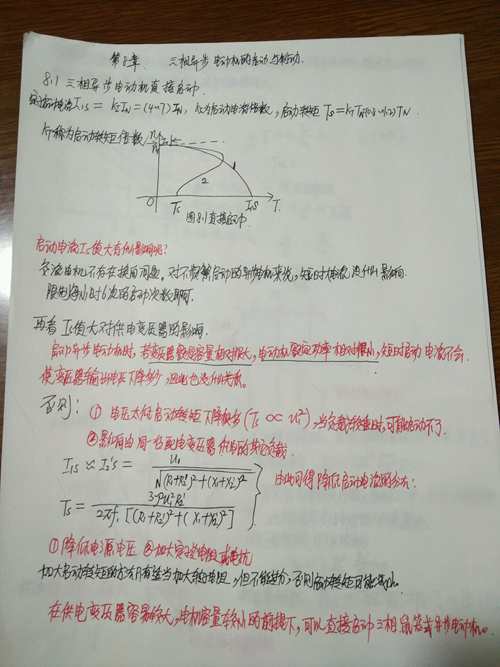 第8章 三相异步电动机的启动与制动.
8.1 三相异步电动机直接启动.
启动电流I₁s = KI I_N = (4~7) I_N, KI为启动电流倍数, 启动转矩 Ts = KT TN = (0.8~1.2) TN
KT称为启动转矩倍数
n
1
2
0 Ts I₁s T.
图8.1 直接启动.
启动电流Is值大有什么影响呢?
交流电机不存在换向问题。对不频繁启动的异步电动机来说, 短时大电流没什么影响.
限制每小时次启动次数即可.
再看 Is值大对供电变压器的影响.
启动异步电动机时, 若变压器额定容量相对很大, 电动机额定功率相对很小, 短时启动电流不会
使变压器输出电压下降多少, 因此也没什么关系。
否则: ① 电压太低启动转矩下降很多 (Ts ∝ U²), 当负载较重时, 可能启动不了.
②影响由同一台配电变压器供电的其它负载.
I₁s ≈ I₂'s = U₁ / √(R₁+R₂')²+(X₁+X₂')²
由此可得降低启动电流的方法:
Ts = 3pU₁²R₂' / 2πf₁[(R₁+R₂')²+(X₁+X₂')²]
①降低电源电压 ②加大定子电阻或电抗
加大启动转矩的方法只有适当加大转子电阻, 但不能过分, 否则启动转矩可能减小.
在供电变压器容量较大, 电机容量较小的前提下, 可以直接启动三相鼠笼式异步电动机。